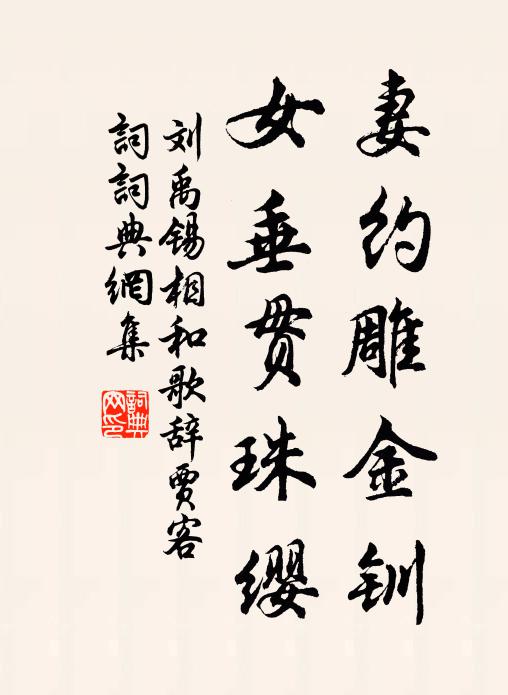 妻约雕金钏
女垂贯珠缨
刘禹锡相和歌辞贾客
詞詞典網集
詞典
网印